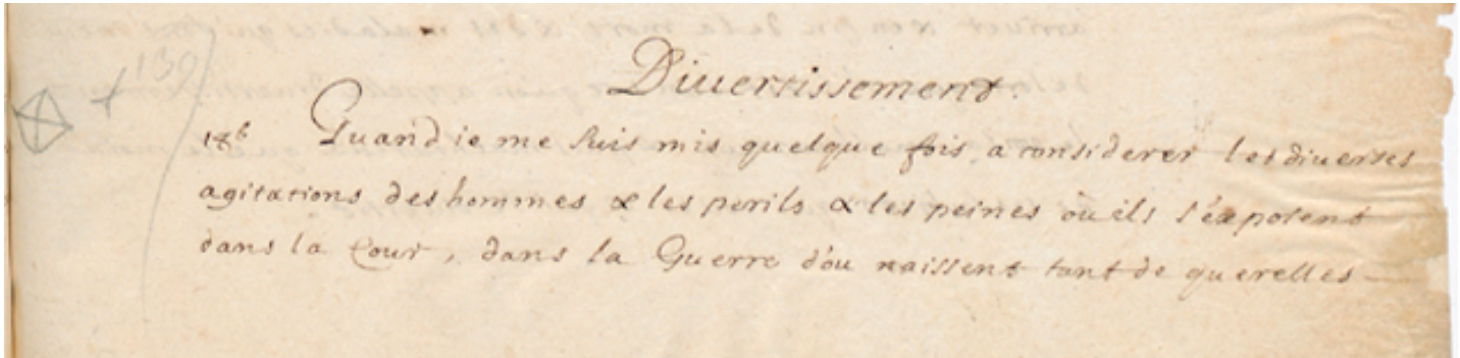 139
Diuertissement.
18⁶ Quand ie me suis mis quelque fois, a considerer les diuerses
agitations des hommes & les perils & les peines où ils s'exposent
dans la Cour, dans la Guerre d'ou naissent tant de querelles